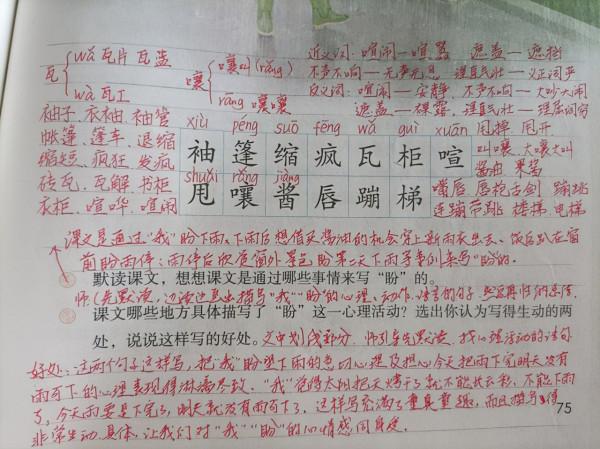 近义词:喧闹—喧嚣 遮盖—遮挡
瓦 wǎ 瓦片 瓦盖
嚷 嚷叫(rǎng)
不声不响—无声无息 理直气壮—义正词严
反义词:喧闹—安静 不声不响—大吵大闹
wà 瓦工
rāng 嚷嚷
遮盖—裸露 理直气壮—理屈词穷
袖子 衣袖 袖管
xiù péng suō fēng wǎ guì xuān 甩掉 甩开
帐篷 篷车 退缩
袖 篷 缩 疯 瓦 柜 喧
叫嚷 大嚷大叫
缩短 疯狂 发疯
shuǎi rǎng jiàng
酱油 果酱
砖瓦 瓦解 书柜
甩 嚷 酱 唇 蹦 梯
嘴唇 唇枪舌剑 蹦跳
衣柜 喧哗 喧闹
连蹦带跳 楼梯 电梯
课文是通过“我”盼下雨、下雨后想借买酱油的机会穿上新雨衣出去、饭后趴在窗
前盼雨停;雨停后欣赏窗外景色盼第二天下雨等事例来写“盼”的。
默读课文,想想课文是通过哪些事情来写“盼”的。
师:先默读,边读边画出描写“我”“盼”的心理、动作、语言的句子
课文哪些地方具体描写了“盼”这一心理活动?选出你认为写得生动的两
处,说说这样写的好处。
师引导先默读,找心理活动的语句
好处:这两个句子这样写,把“我”盼望下雨的急切心理及担心今天把雨下完明天没有
雨可下的心理表现得淋漓尽致。“我”觉得太阳把天烤干了就不能长云彩,不能下雨
了,今天雨要是下完了,明天就没有雨可下了,这样写充满了童真童趣,而且描写得
75
非常生动、具体,让我们对“我”“盼”的心情感同身受。